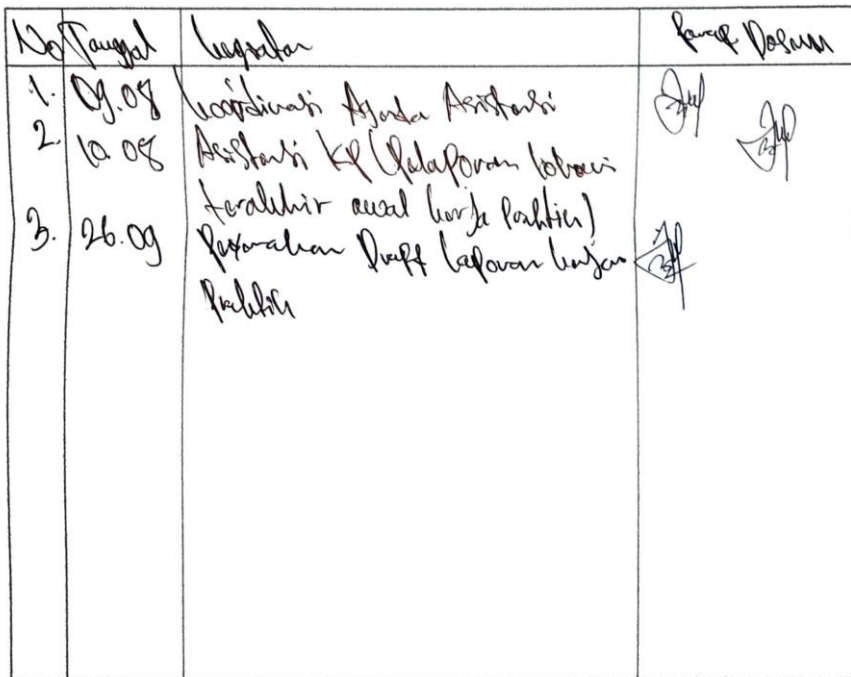 No Tanggal Kegiatan Paraf Dosen
1. 09.08 Koordinasi Agenda Asistensi
2. 10.08 Asistensi KP (Pelaporan
terakhir awal kerja Praktik)
3. 26.09 Draft laporan kerja
Praktik